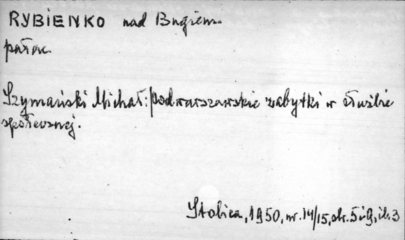 RYBIENKO nad Bugiem
pałac
Szymański Michał: podwarszawskie zabytki w służbie
społecznej.
Stolica, 1950, nr. 14/15, str. 5 i 9, il. 3